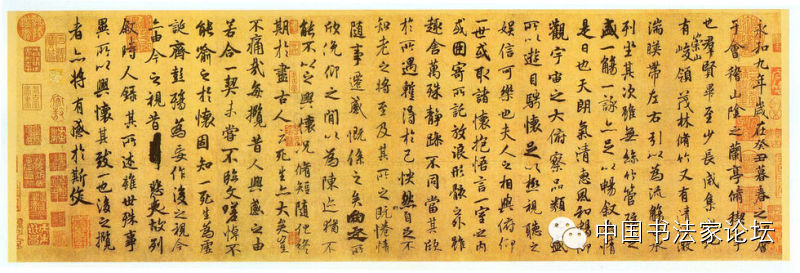 永和九年歲在癸丑暮春之初會
于會稽山陰之蘭亭脩稧事
也羣賢畢至少長咸集此地
有崇山峻領茂林脩竹又有清流激
湍暎帶左右引以為流觴曲水
列坐其次雖無絲竹管弦之
盛一觴一詠亦足以暢叙幽情
是日也天朗氣清惠風和暢仰
觀宇宙之大俯察品類之盛
所以遊目騁懷足以極視聽之
娛信可樂也夫人之相與俯仰
一世或取諸懷抱悟言一室之內
或因寄所託放浪形骸之外雖
趣舍萬殊靜躁不同當其欣
於所遇暫得於己快然自足不
知老之將至及其所之既惓情
隨事遷感慨係之矣向之所
欣俛仰之閒以為陳迹猶不
能不以之興懷況脩短隨化終
期於盡古人云死生亦大矣豈
不痛哉每攬昔人興感之由
若合一契未嘗不臨文嗟悼不
能喻之於懷固知一死生為虛
誕齊彭殤為妄作後之視今
亦由今之視昔悲夫故列
敘時人錄其所述雖世殊事
異所以興懷其致一也後之攬
者亦將有感於斯文
中国书法家论坛